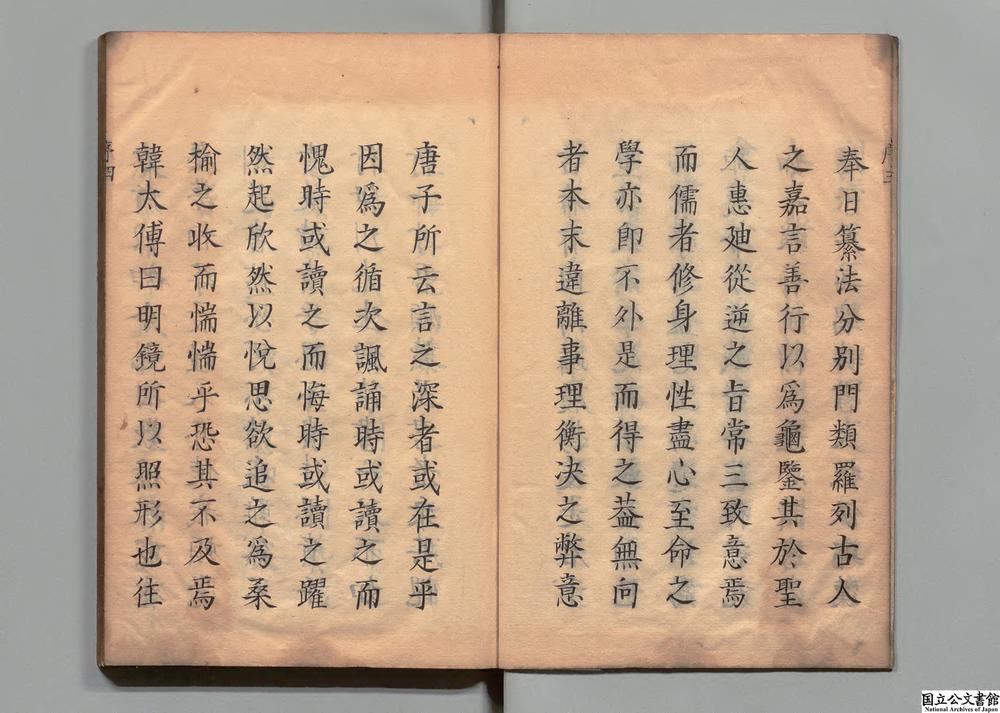 奉日纂法分別門類羅列古人
之嘉言善行以爲龜鑒其於聖
人惠廸從逆之旨常三致意焉
而儒者修身理性盡心至命之
學亦卽不外是而得之葢無向
者本末違離事理衡决之弊意
唐子所云言之深者或在是乎
因爲之循次諷誦時或讀之而
愧時或讀之而悔時或讀之躍
然起欣然以悅思欲追之爲桑
榆之收而惴惴乎恐其不及焉
韓太傅曰明鏡所以照形也往
序三
序四
国立公文書館
National Archives of Japan